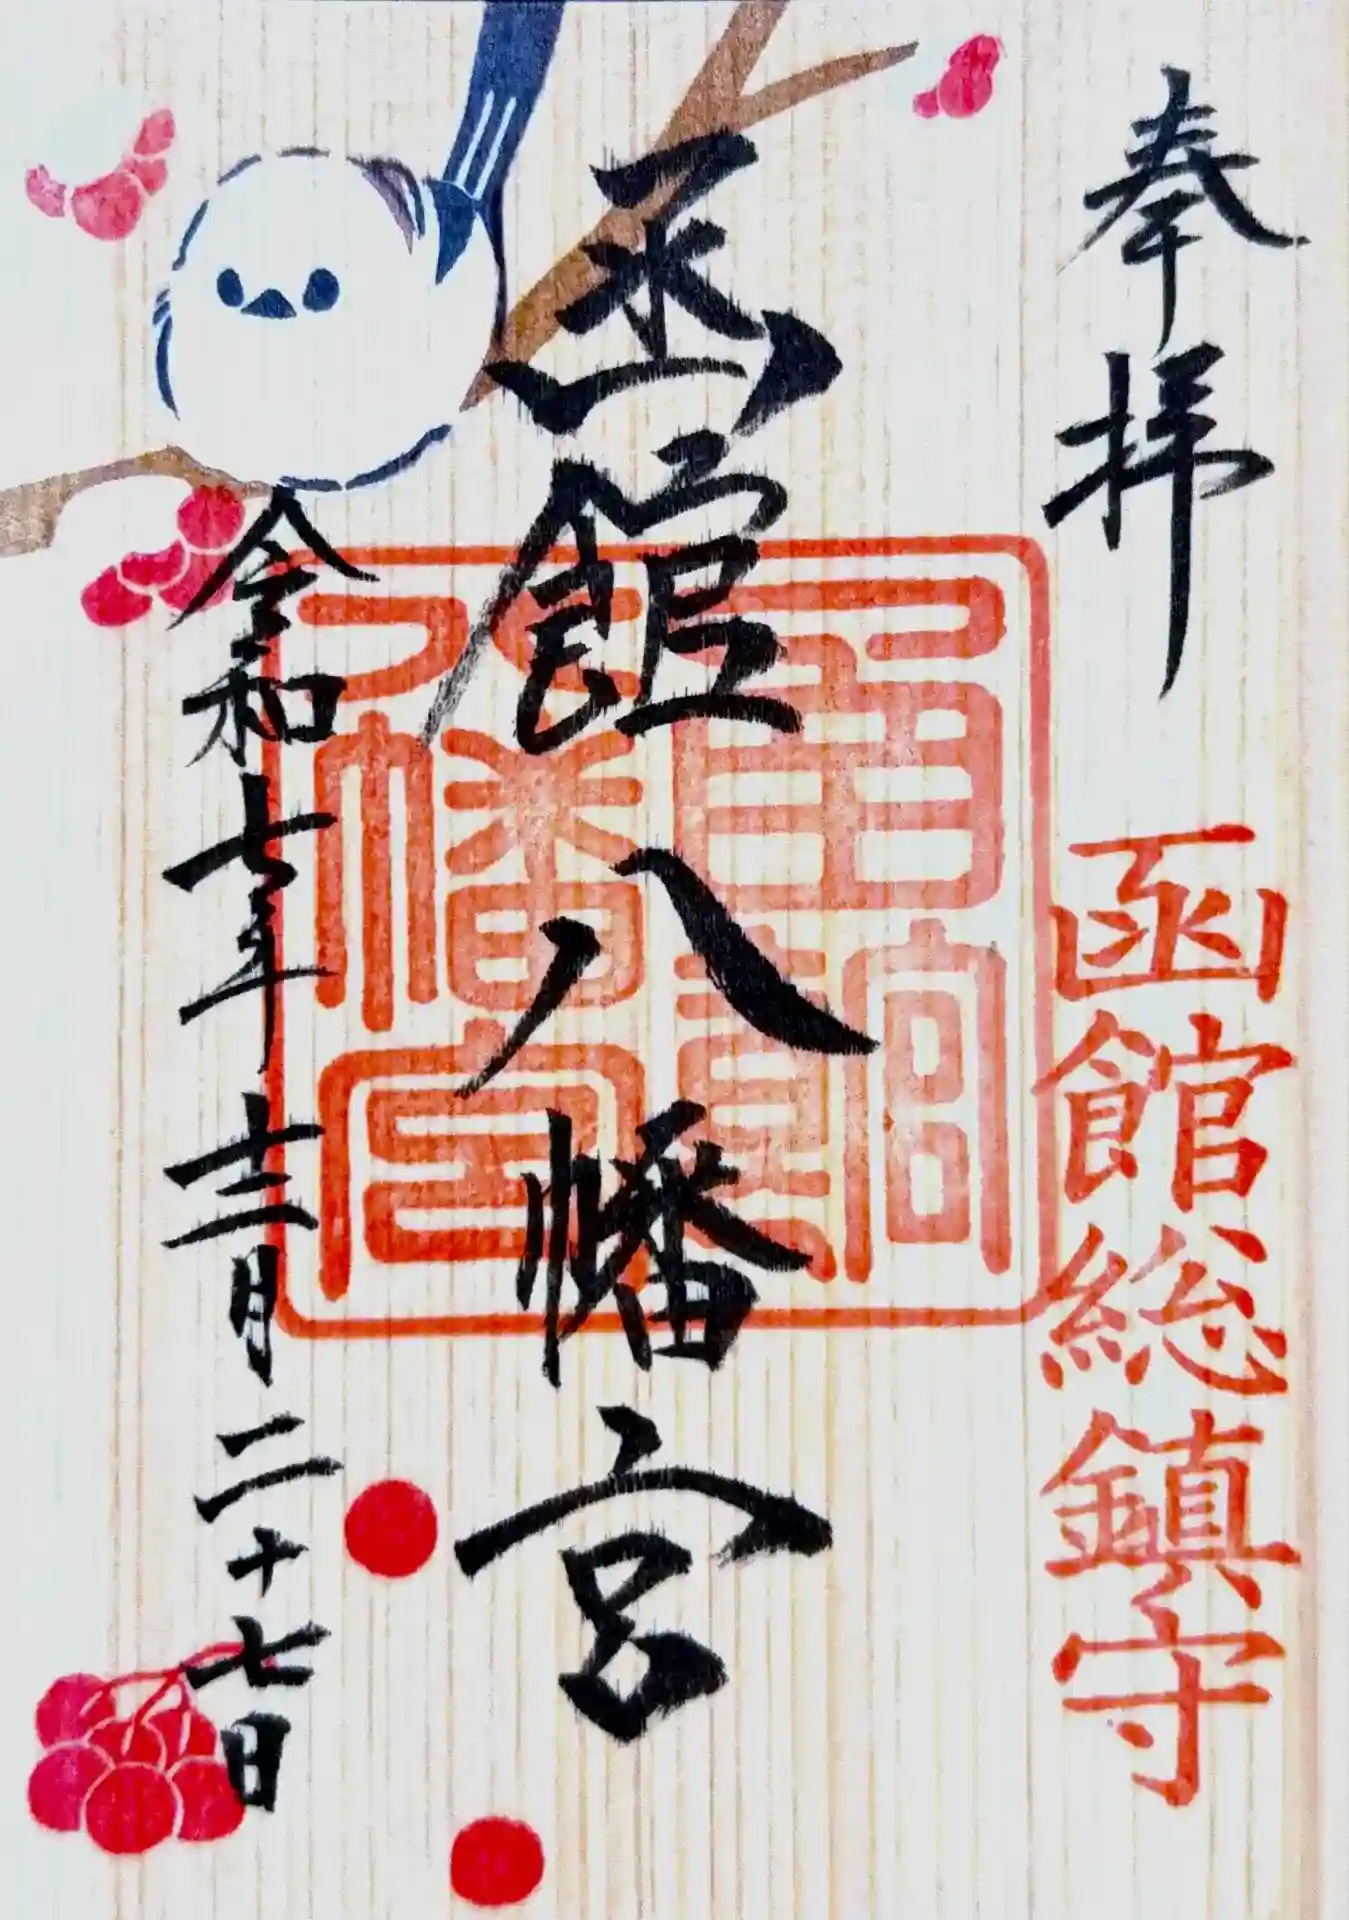 奉拝
函館総鎮守
函館八幡宮
令和七年十二月二十七日